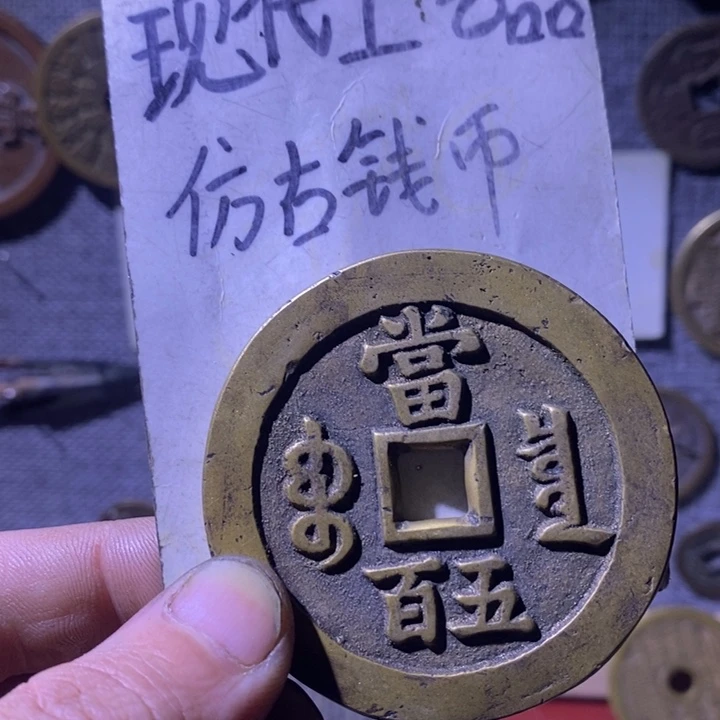 现代工艺品
仿古钱币
當
五百